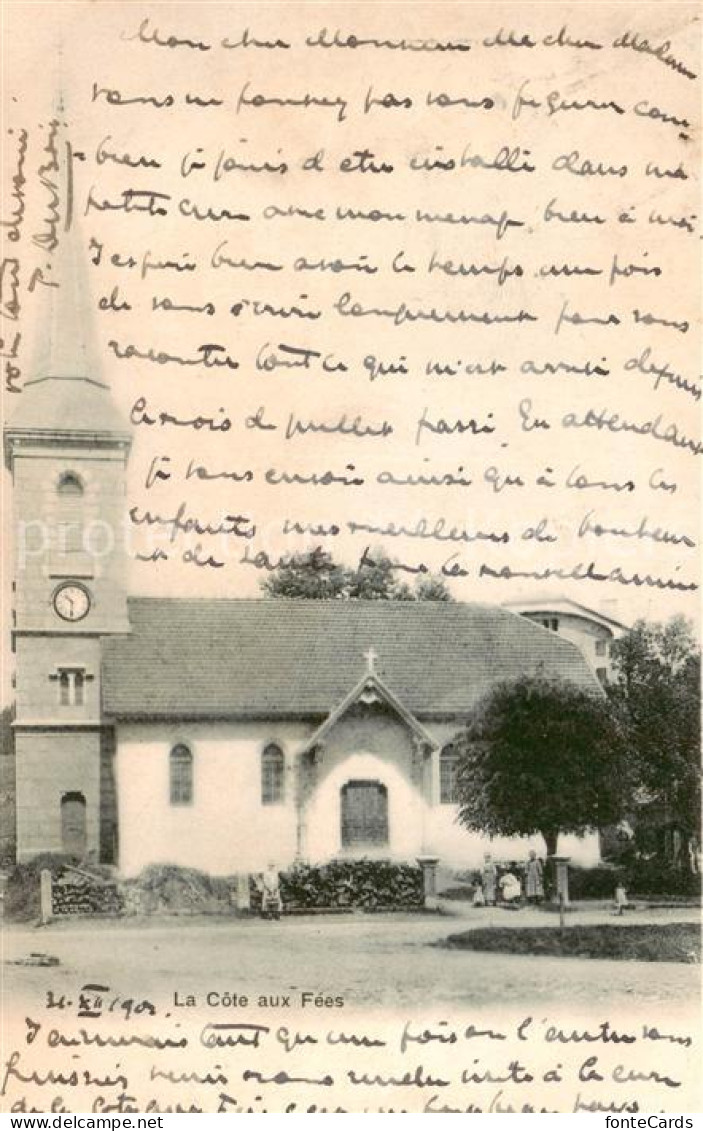 Mon cher Monsieur Ma chère Madame
Vous ne pouvez pas vous figurer com
bien je jouis d'être installé dans ma
petite cure avec mon ménage bien à moi.
J'espère bien avoir le temps une fois
de vous écrire longuement pour vous
raconter tout ce qui m'est arrivé depuis
le mois de juillet passé. En attendant
je vous envoie ainsi qu'à tous les
enfants mes meilleurs de bonheur
et de santé pour la nouvelle année
votre tout dévoué
P. DuBois.
31. XII 190
La Côte aux Fées
J'aimerais tant qu'une fois ou l'autre vous
puissiez venir nous rendre visite à la cure
de la Côte aux Fées c'est un beau pays
protected
fonteCards